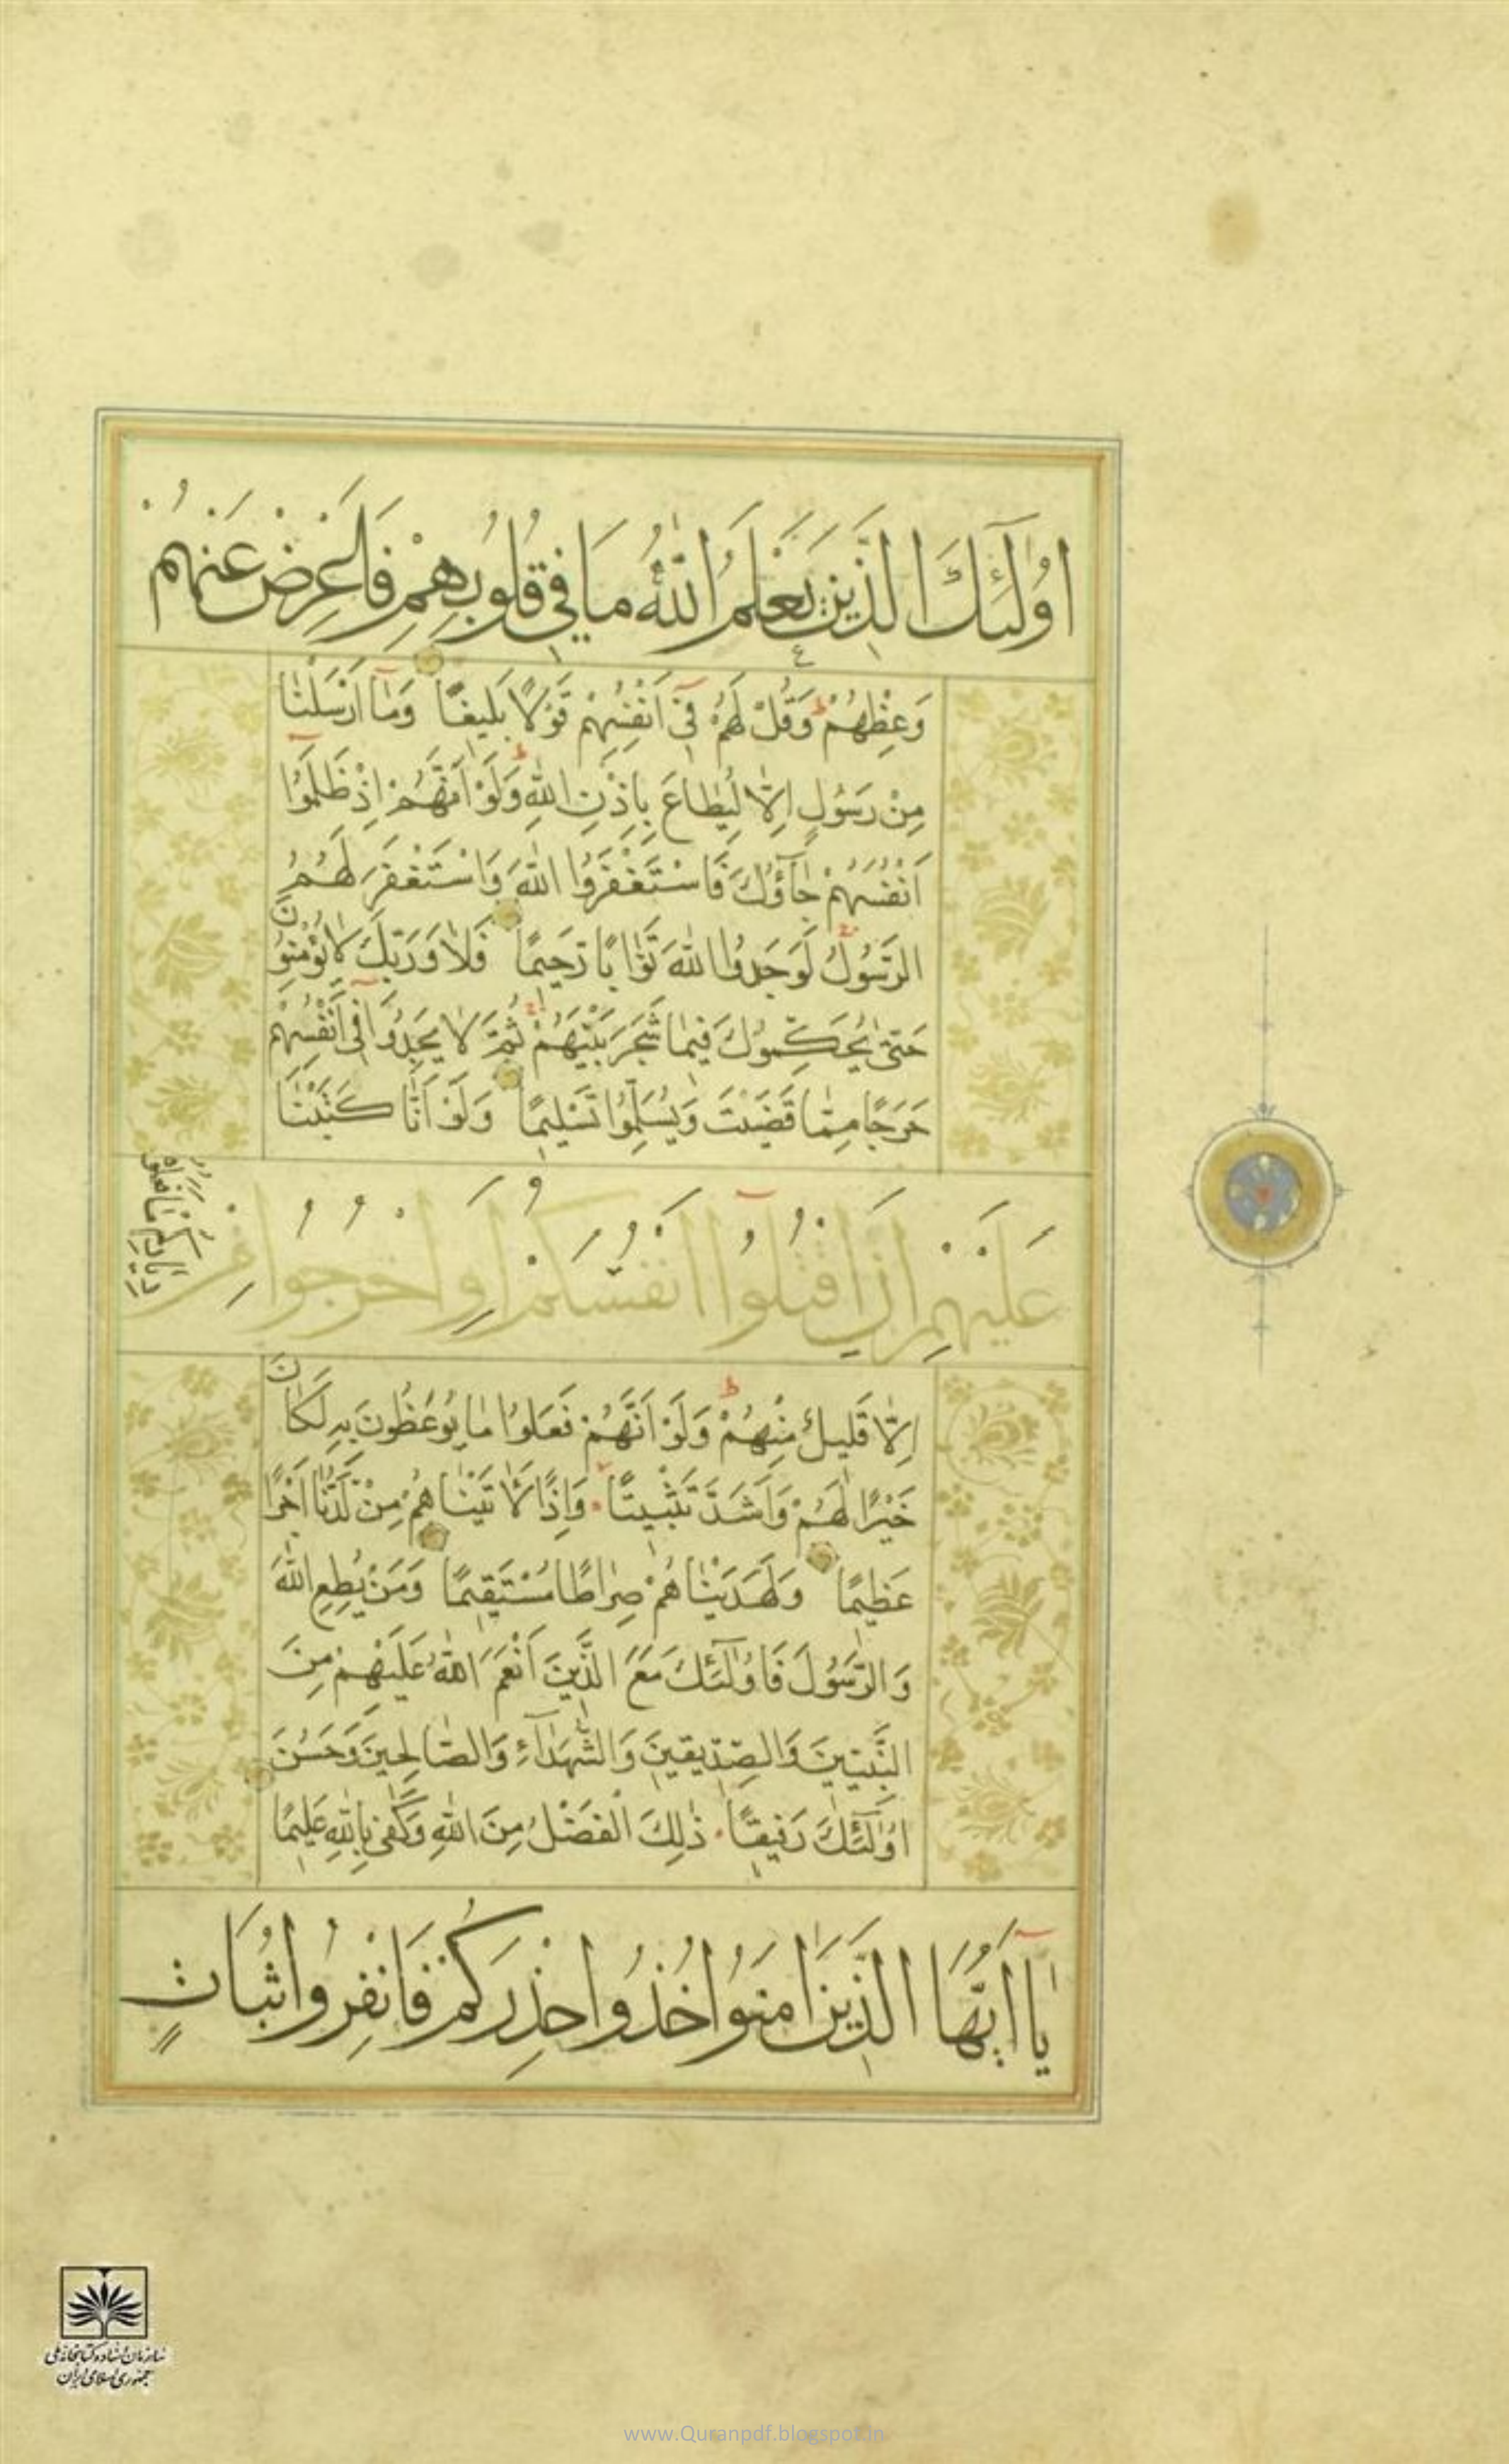 اُولٰٓئِكَ الَّذِينَ يَعْلَمُ اللّٰهُ مَا فِي قُلُوبِهِمْ فَاَعْرِضْ عَنْهُمْ
وَعِظْهُمْ وَقُلْ لَهُمْ فِيٓ اَنْفُسِهِمْ قَوْلًا بَلِيغًا وَمَآ اَرْسَلْنَا
مِنْ رَسُولٍ اِلَّا لِيُطَاعَ بِاِذْنِ اللّٰهِ وَلَوْ اَنَّهُمْ اِذْ ظَلَمُوٓا
اَنْفُسَهُمْ جَآؤُكَ فَاسْتَغْفَرُوا اللّٰهَ وَاسْتَغْفَرَ لَهُمُ
الرَّسُولُ لَوَجَدُوا اللّٰهَ تَوَّابًا رَحِيمًا فَلَا وَرَبِّكَ لَا يُؤْمِنُونَ
حَتّٰى يُحَكِّمُوكَ فِيمَا شَجَرَ بَيْنَهُمْ ثُمَّ لَا يَجِدُوا فِيٓ اَنْفُسِهِمْ
حَرَجًا مِمَّا قَضَيْتَ وَيُسَلِّمُوا تَسْلِيمًا وَلَوْ اَنَّا كَتَبْنَا
عَلَيْهِمْ اَنِ اقْتُلُوٓا اَنْفُسَكُمْ اَوِ اخْرُجُوا مِنْ
دِيَارِكُمْ مَا فَعَلُوهُ
اِلَّا قَلِيلٌ مِنْهُمْ وَلَوْ اَنَّهُمْ فَعَلُوا مَا يُوعَظُونَ بِهِ لَكَانَ
خَيْرًا لَهُمْ وَاَشَدَّ تَثْبِيتًا وَاِذًا لَاٰتَيْنَاهُمْ مِنْ لَدُنَّا اَجْرًا
عَظِيمًا وَلَهَدَيْنَاهُمْ صِرَاطًا مُسْتَقِيمًا وَمَنْ يُطِعِ اللّٰهَ
وَالرَّسُولَ فَاُولٰٓئِكَ مَعَ الَّذِينَ اَنْعَمَ اللّٰهُ عَلَيْهِمْ مِنَ
النَّبِيِّينَ وَالصِّدِّيقِينَ وَالشُّهَدَآءِ وَالصَّالِحِينَ وَحَسُنَ
اُولٰٓئِكَ رَفِيقًا ذٰلِكَ الْفَضْلُ مِنَ اللّٰهِ وَكَفٰى بِاللّٰهِ عَلِيمًا
يَآ اَيُّهَا الَّذِينَ اٰمَنُوا خُذُوا حِذْرَكُمْ فَانْفِرُوا ثُبَاتٍ
سازمان اسناد و کتابخانه ملی
جمهوری اسلامی ایران
www.Quranpdf.blogspot.in